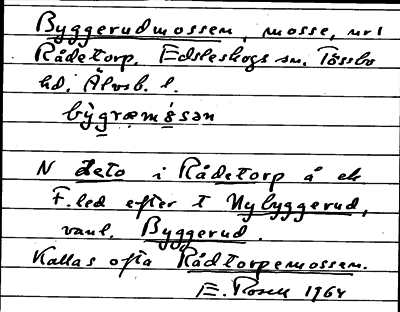 Byggerudmossen, mosse, nr 1
Rådetorp, Edsleskogs sn, Tössbo
hd, Älvsb. l.
by̆græmósən
N deto i Rådetorp å ek
F.led efter t Nybyggerud,
vanl. Byggerud.
Kallas ofta Rådtorpemossen.
E. Rosell 1964